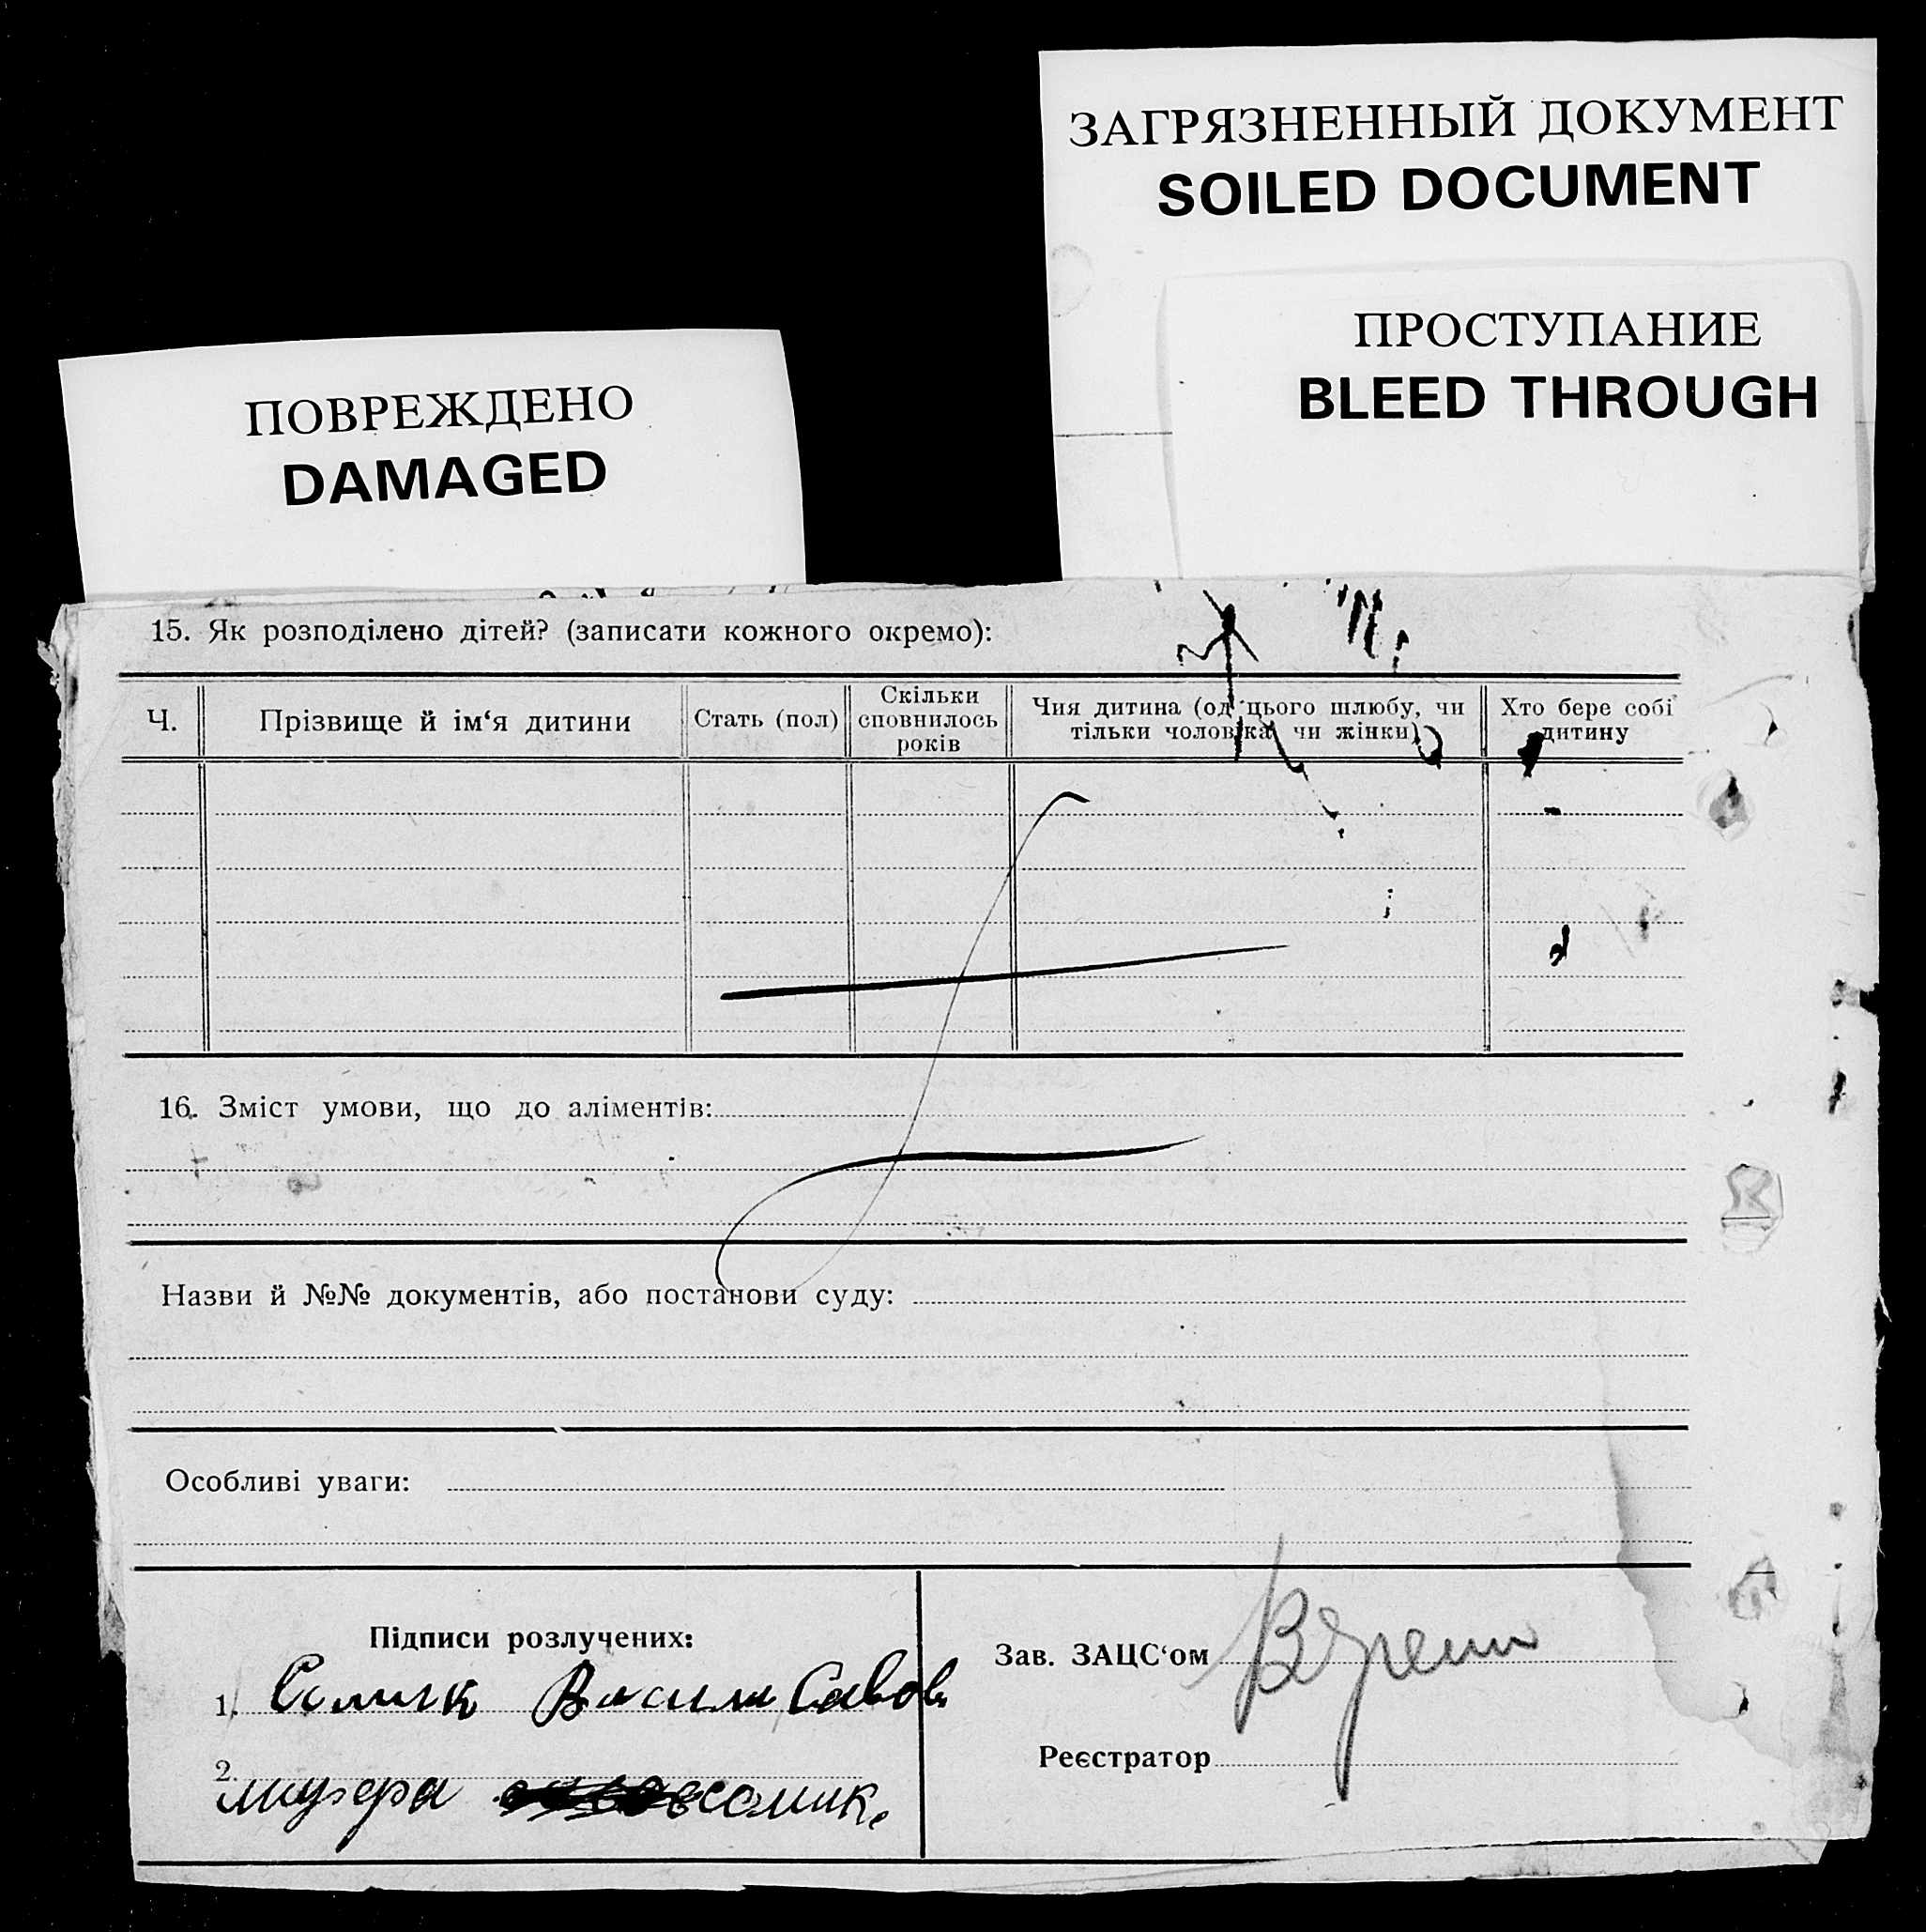 ЗАГРЯЗНЕННЫЙ ДОКУМЕНТ
SOILED DOCUMENT
ПРОСТУПАНИЕ
BLEED THROUGH
ПОВРЕЖДЕНО
DAMAGED
15. Як розподілено дітей? (записати кожного окремо):
Ч.
Прізвище й ім‘я дитини
Стать (пол)
Скільки
сповнилось
років
Чия дитина (од цього шлюбу, чи
тільки чоловіка чи жінки)
Хто бере собі
дитину
16. Зміст умови, що до аліментів:
Назви й №№ документів, або постанови суду:
Особливі уваги:
Підписи розлучених:
1. Сомик Василь Савов
2. сомик
Зав. ЗАЦС‘ом
Реєстратор